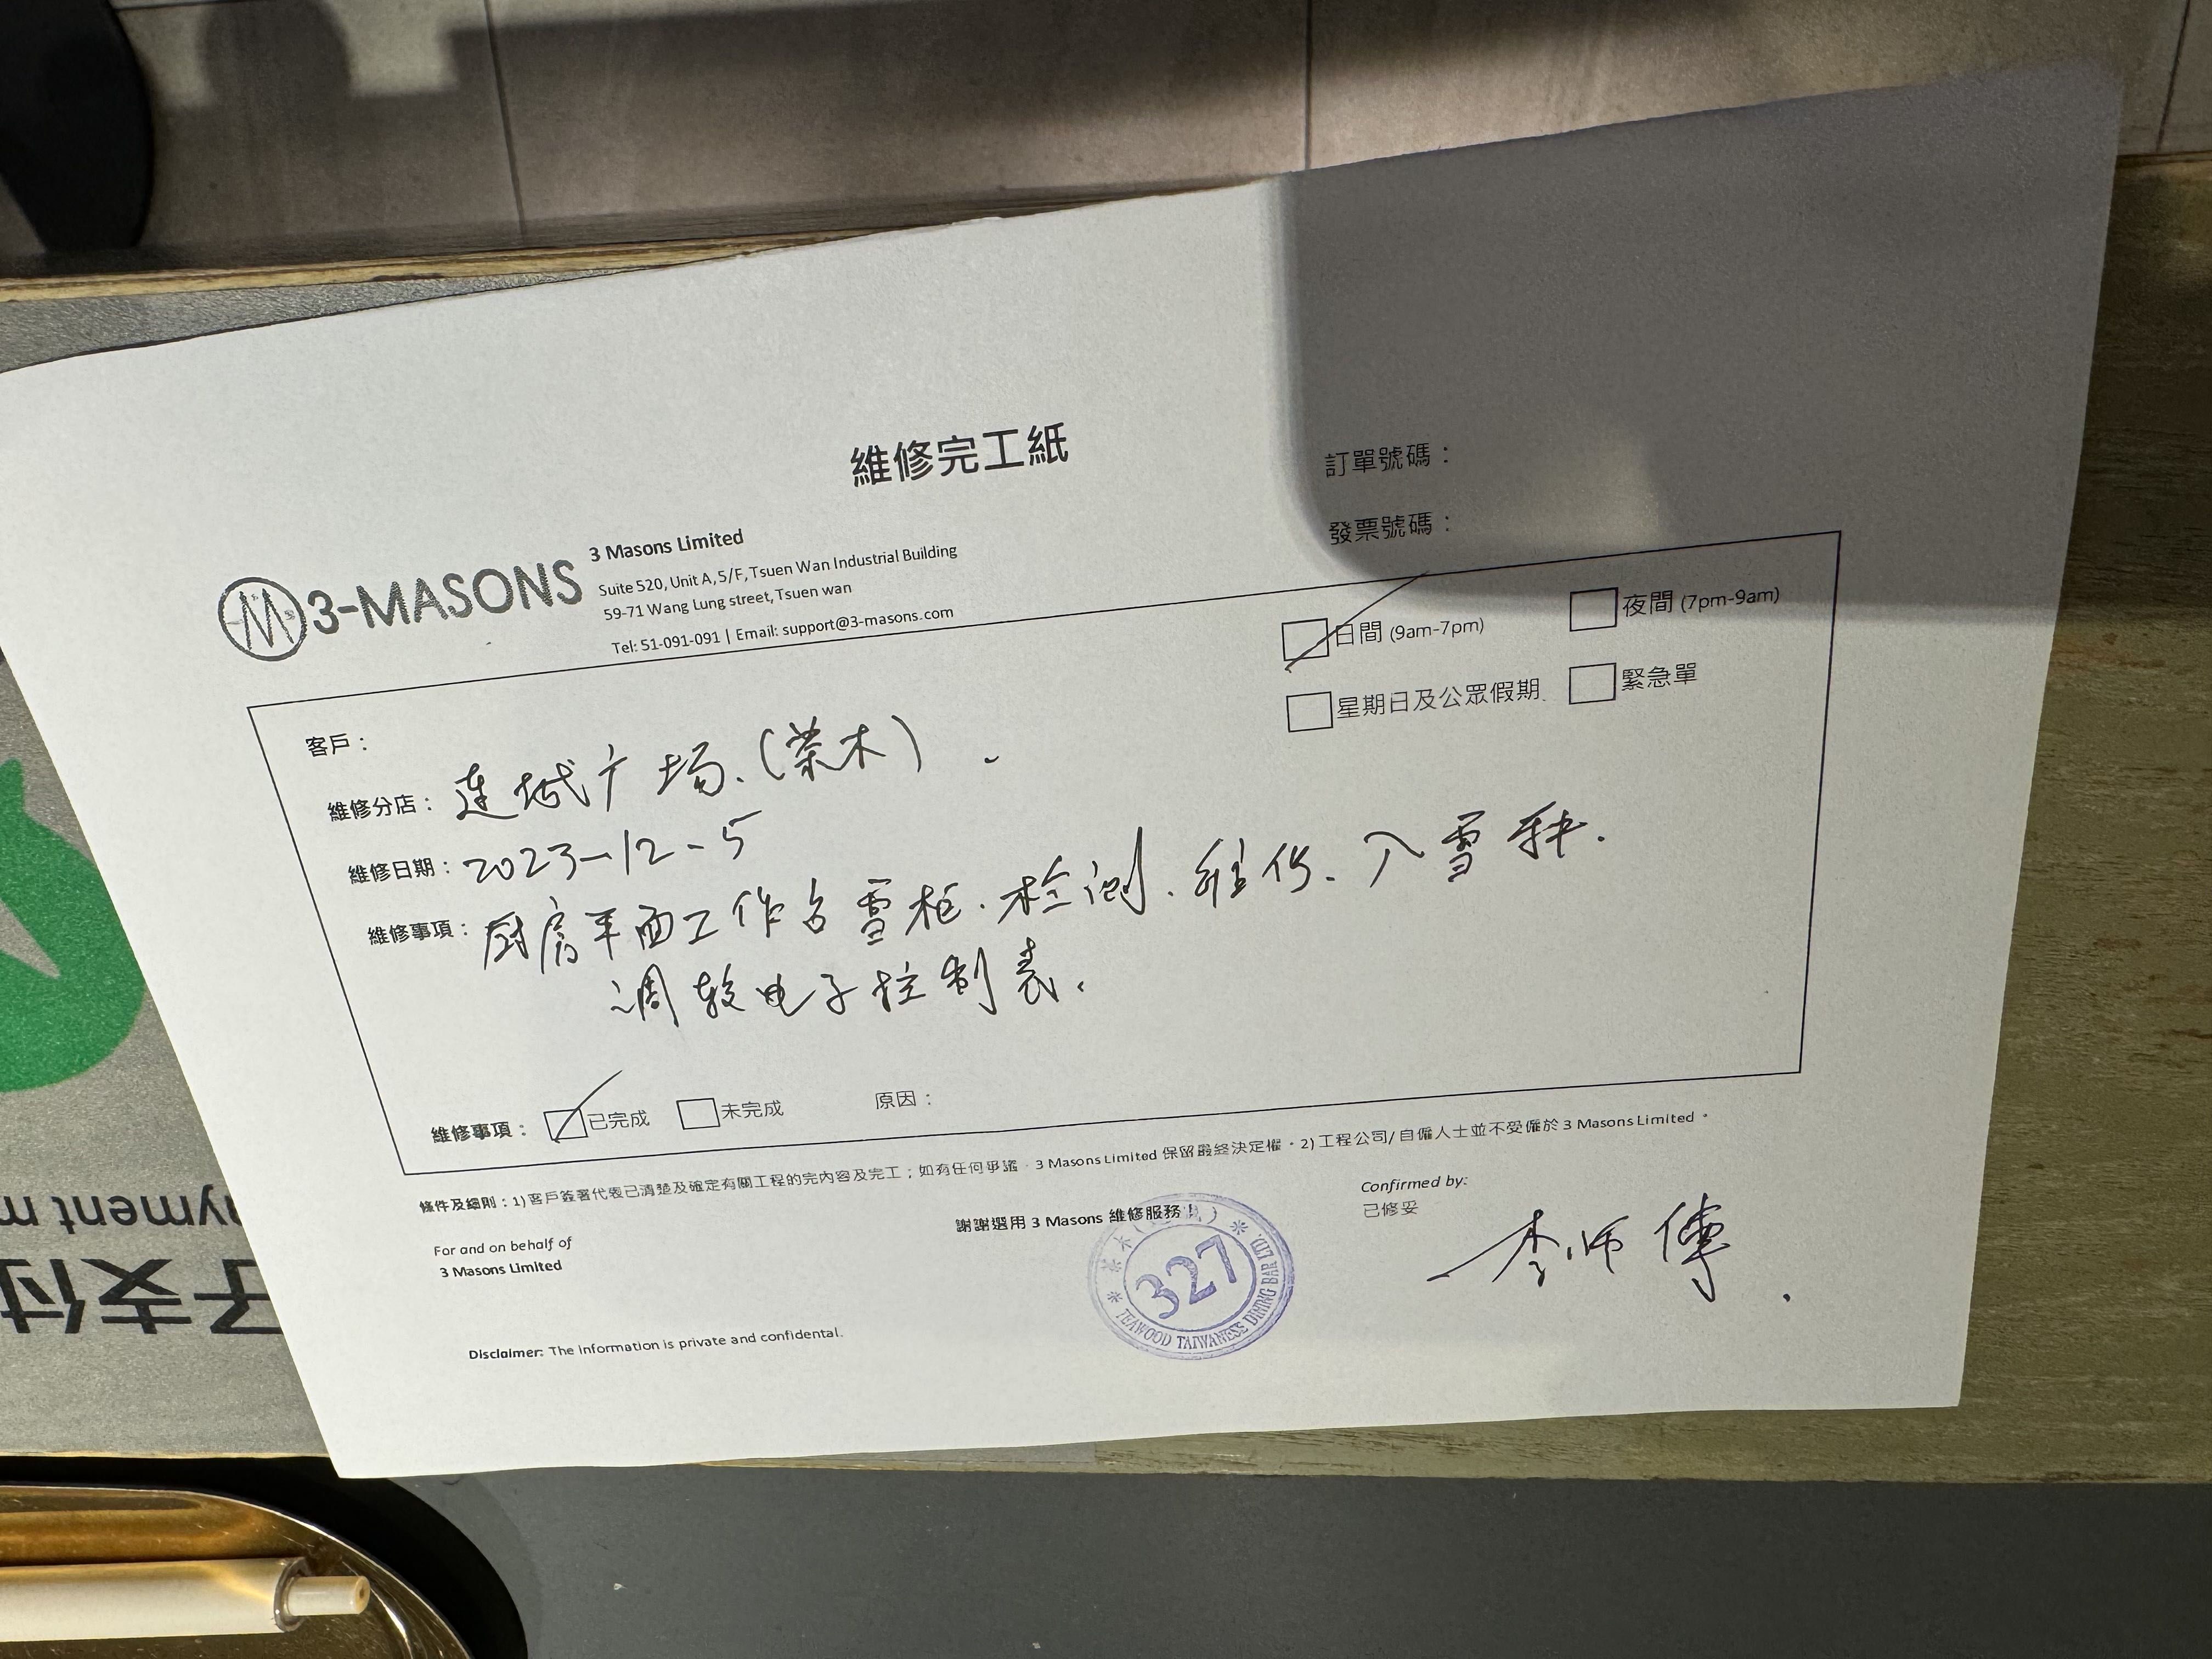 維修完工紙
訂單號碼：
發票號碼：
3-MASONS
3 Masons Limited
Suite 520, Unit A, 5/F, Tsuen Wan Industrial Building
59-71 Wang Lung street, Tsuen wan
Tel: 51-091-091 | Email: support@3-masons.com
日間 (9am-7pm)
夜間 (7pm-9am)
星期日及公眾假期
緊急單
客戶：
維修分店：连城广场.(茶木).
維修日期：2023-12-5
維修事項：厨房平面工作台雪柜.检测.维修.入雪种.
调较电子控制表.
維修事項： 已完成 未完成 原因：
條件及細則：1)客戶簽署代表已清楚及確定有關工程的完內容及完工；如有任何爭議，3 Masons Limited 保留最終決定權。2)工程公司/自僱人士並不受僱於 3 Masons Limited。
謝謝選用 3 Masons 維修服務！
For and on behalf of
3 Masons Limited
Confirmed by:
已修妥
李师傅.
茶木
327
TEAWOOD TAIWANESS DINING BAR LTD.
Disclaimer: The information is private and confidental.
yment m
子支付